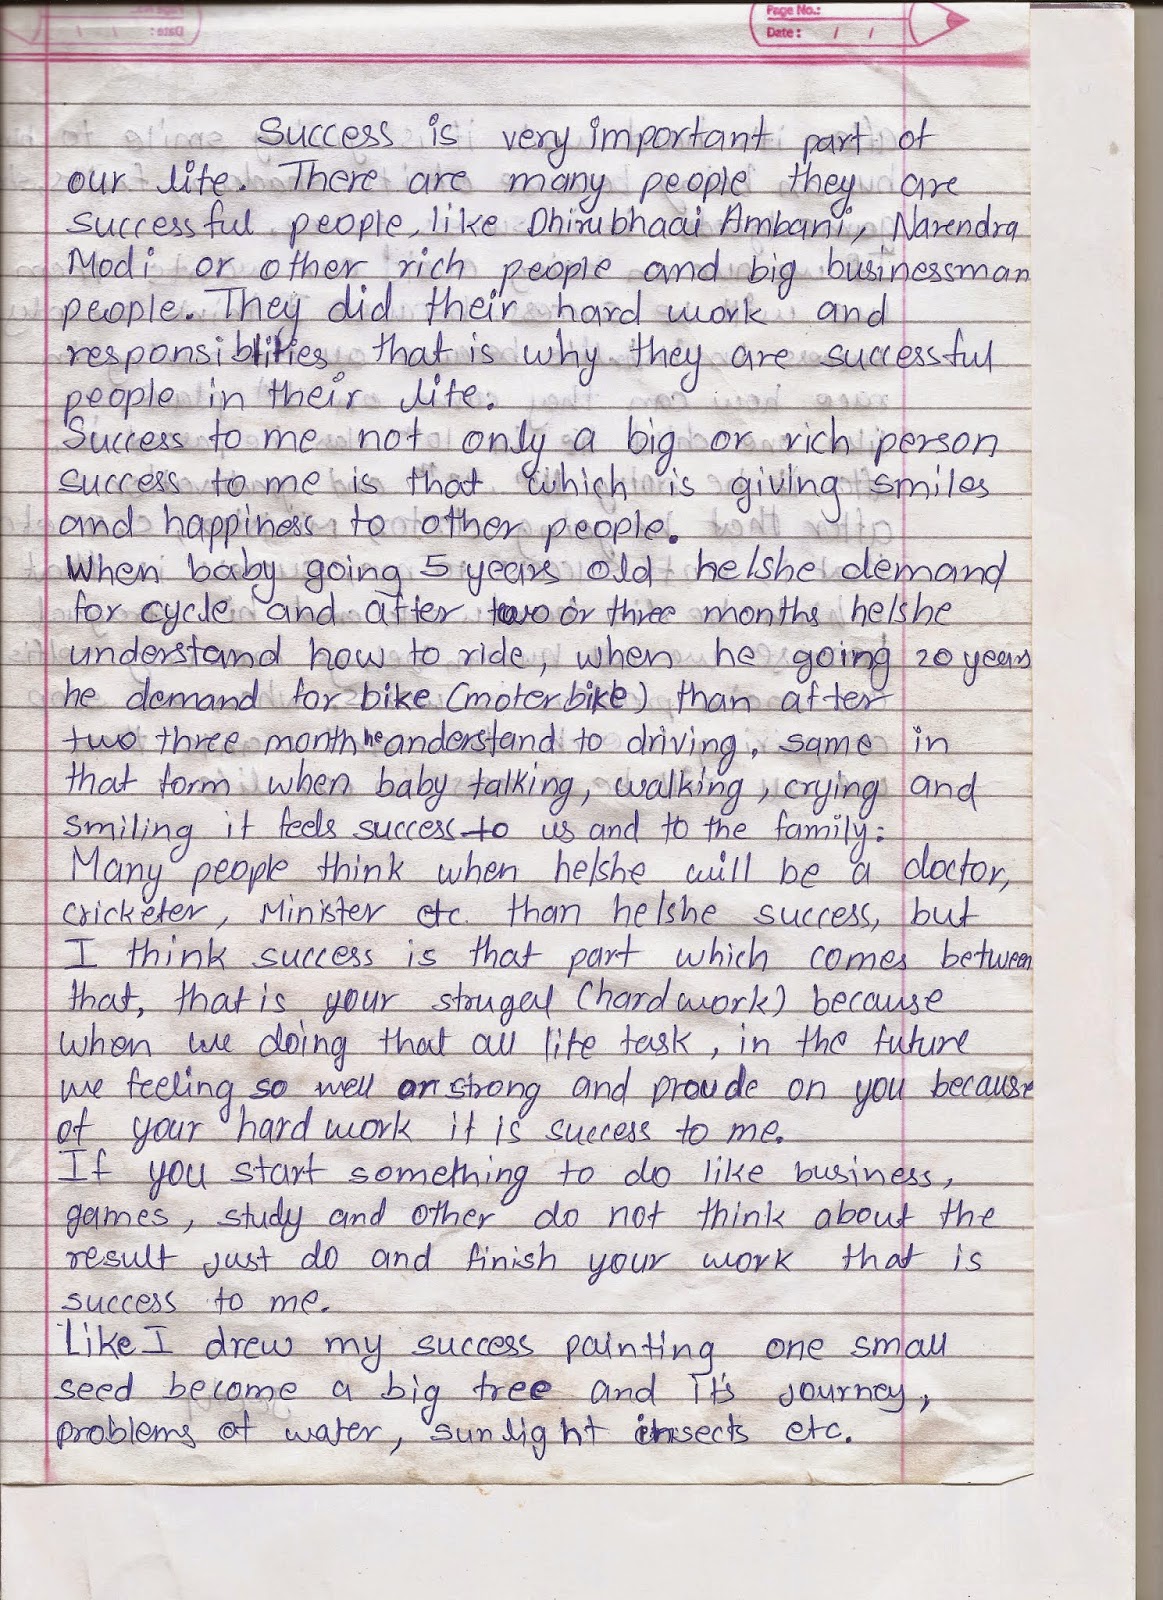 Page No.:
Date: / /
Success is very important part of
our life. There are many people they are
successful people, like Dhirubhaai Ambani, Narendra
Modi or other rich people and big businessman
people. They did their hard work and
responsiblities that is why they are successful
people in their life.
Success to me not only a big or rich person
success to me is that which is giving smiles
and happiness to other people.
When baby going 5 years old he/she demand
for cycle and after two or three months he/she
understand how to ride, when he going 20 years
he demand for bike (moterbike) than after
two three month he anderstand to driving, same in
that form when baby talking, walking, crying and
smiling it feels success to us and to the family.
Many people think when he/she will be a doctor,
cricketer, Minister etc. than he/she success, but
I think success is that part which comes between
that, that is your strugal (hardwork) because
when we doing that all life task, in the future
we feeling so well or strong and proude on you because
of your hard work it is success to me.
If you start something to do like business,
games, study and other do not think about the
result just do and finish your work that is
success to me.
Like I drew my success painting one small
seed become a big tree and it's journey,
problems of water, sunlight insects etc.